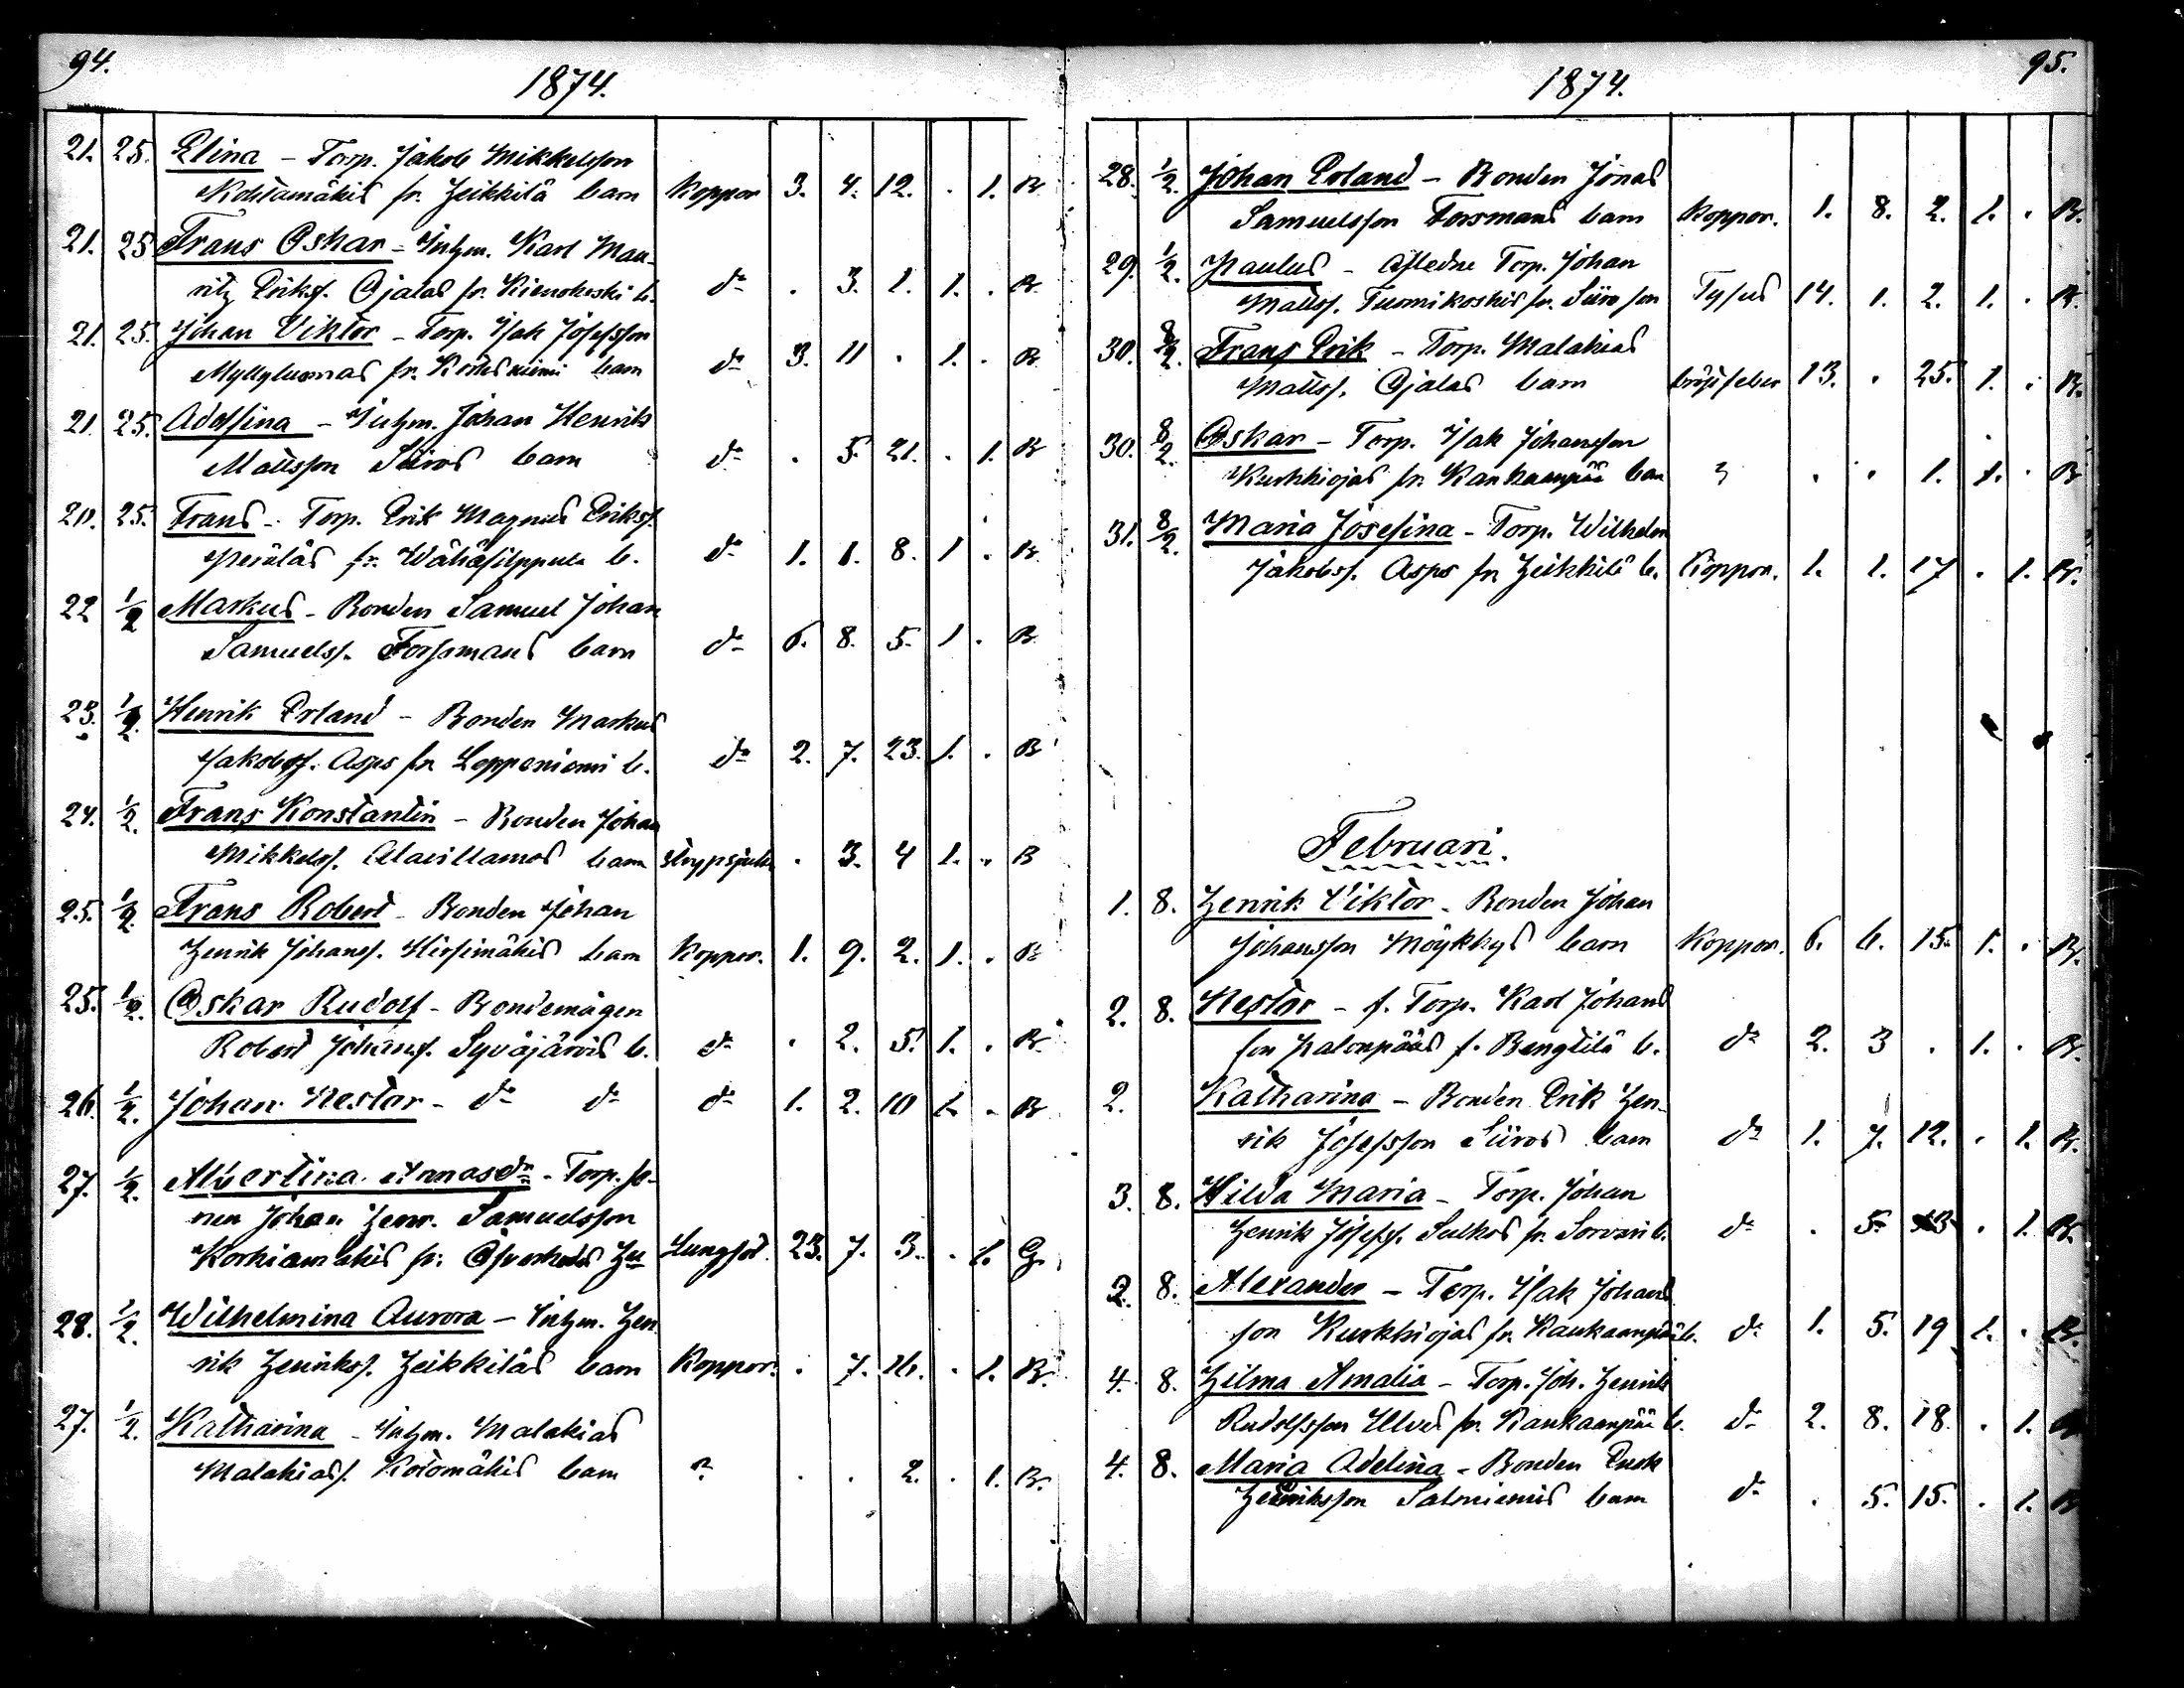 94.
1874.
21. 25. Elina - Torp. Jakob Mikkelsson
Kohtamäkis fr. Heikkilä barn Koppor 3. 4. 12. . 1. B.
21. 25 Frans Oskar - Inhm. Karl Mau-
ritz Eriks. Ojalas fr. b. do . 3. 1. 1. . B.
21. 25. Johan Viktor - Torp. Isak Josefsson
Myllyluomas fr. barn do 3. 11 . 1. . B
21. 25. Adolfina - Inhm. Johan Henrik
Mattsson Siiros barn do . 5. 21. . 1. B
21. 25. Frans - Torp. Erik Magnus Eriks.
Perälas fr. b. do 1. 1. 8. 1 . B.
22 1/2 Markus - Bonden Samuel Johan
Samuelss. Forssmans barn do 6. 8. 5. 1 . B.
23. 1/2. Henrik Erland - Bonden Markus
Jakobss. Asps fr. Leppeniemi b. do 2. 7. 23. 1. . B
24. 1/2. Frans Konstantin - Bonden Johan
Mikkelss. barn strypsjuka . 3. 4 1. . B
25. 1/2. Frans Robert - Bonden Johan
Henrik Johans. Hirsimäkis barn Koppor. 1. 9. 2. 1. . B
25. 1/2. Oskar Rudolf - Bondemågen
Robert Johans. Syväjärvis b. do . 2. 5. 1. . B.
26. 1/2. Johan Nestor - do do do 1. 2. 10 1. . B
27. 1/2. Albertina Annasdr - Torp. so-
nen Johan Henr. Samuelsson
Korhiamäkis fr. Hu Lungsot. 23. 7. 3. . 1. G.
28. 1/2. Wilhelmina Aurora - Inhm. Hen
rik Henrikss. Heikkiläs barn Koppor. . 7. 16. . 1. B.
27. 1/2. Katharina - Inhm. Malakias
Malakiass. Kotomäkis barn ? . . 2. . 1. B.
95.
1874.
28. 1/2. Johan Erland - Bonden Jonas
Samuelsson Forsmans barn Koppor. 1. 8. 2. 1. . B.
29. 1/2. Paulus - Afledne Torp. Johan
Mattss. Tuomikoskis fr. Siiro son Tyfus 14. 1. 2. 1. . B.
30. 8/2. Frans Erik - Torp. Malakias
Mattss. Ojalas barn bröstfeber 13. . 25. 1. . B.
30. 8/2. Oskar - Torp. Isak Johansson
Kurkkiojas fr. Kankaanpää barn ? . . 1. 1. . B
31. 8/2. Maria Josefina - Torp. Wilhelm
Jakobss. Asps fr. Heikkilä b. Koppor. 1. 1. 17 . 1. B.
Februari.
1. 8. Henrik Viktor - Bonden Johan
Johansson Möykkys barn Koppor. 6. 6. 15. 1. . B.
2. 8. Nestor - f. Torp. Karl Johans
son Palonpääs f. Bengtilä b. do 2. 3 . 1. . B.
2. Katharina - Bonden Erik Hen-
rik Josefsson Siiros barn do 1. 7. 12. . 1. B.
3. 8. Hilda Maria - Torp. Johan
Henrik Josefss. Sulkos fr. Sorvari b. do . 5. 13 . 1. B.
2. 8. Alexander - Torp. Isak Johans
son Kurkkiojas fr. Kankaanpää b. do 1. 5. 19 1. . B.
4. 8. Hilma Amalia - Torp. Joh. Henrik
Rudolfsson Ulvos fr. Kankaanpää b. do 2. 8. 18. . 1. B
4. 8. Maria Adelina - Bonden Erik
Henriksson Saloniemis barn do . 5. 15. . 1. B